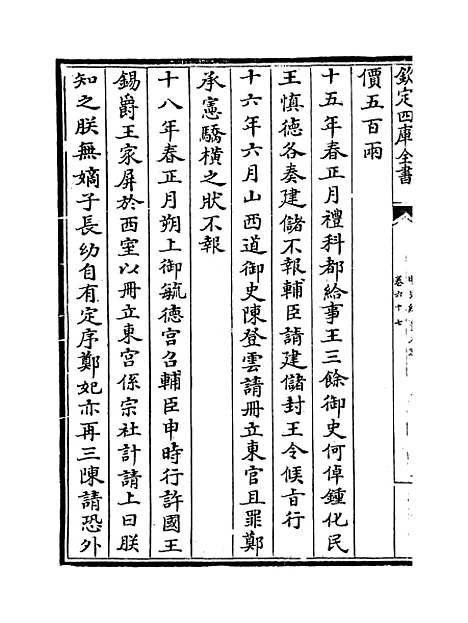 欽定四庫全書
卷六十七
價五百兩
十五年春正月禮科都給事王三餘御史何倬鍾化民
王慎德各奏建儲不報輔臣請建儲封王令候㫖行
十六年六月山西道御史陳登雲請册立東宮且罪鄭
承憲驕橫之狀不報
十八年春正月朔上御毓德宮召輔臣申時行許國王
錫爵王家屏於西室以册立東宮係宗社計請上曰朕
知之朕無嫡子長幼自有定序鄭妃亦再三陳請恐外